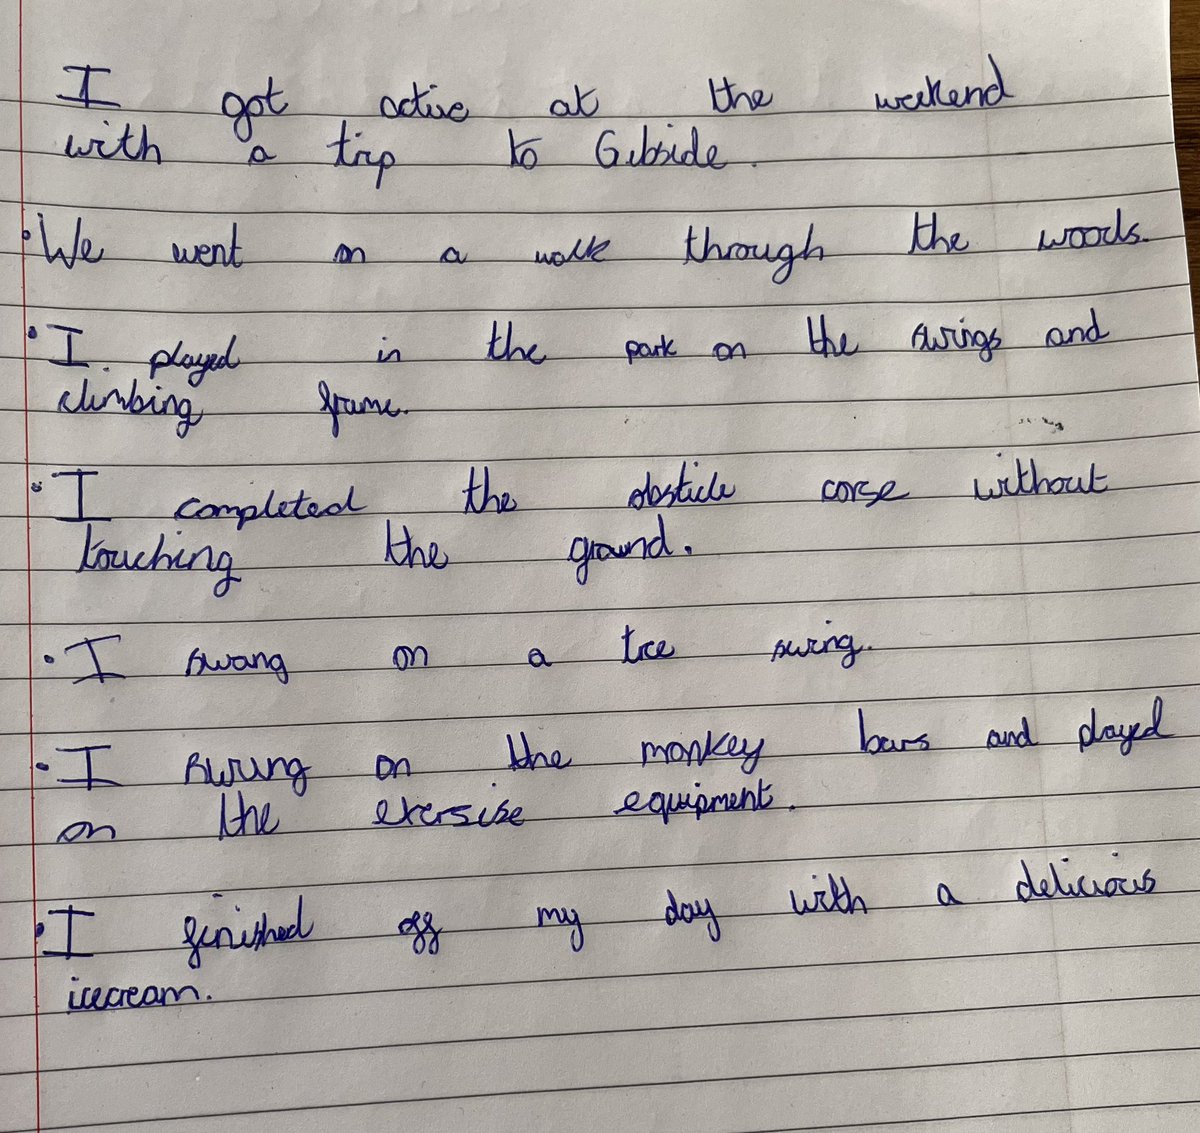 I got active at the weekend
with a trip to Gibside.
• We went on a walk through the woods.
• I played in the park on the swings and
climbing frame.
• I completed the obsticle corse without
touching the ground.
• I swang on a tree swing.
• I swung on the monkey bars and played
on the exersise equipment.
• I finished off my day with a delicious
icecream.